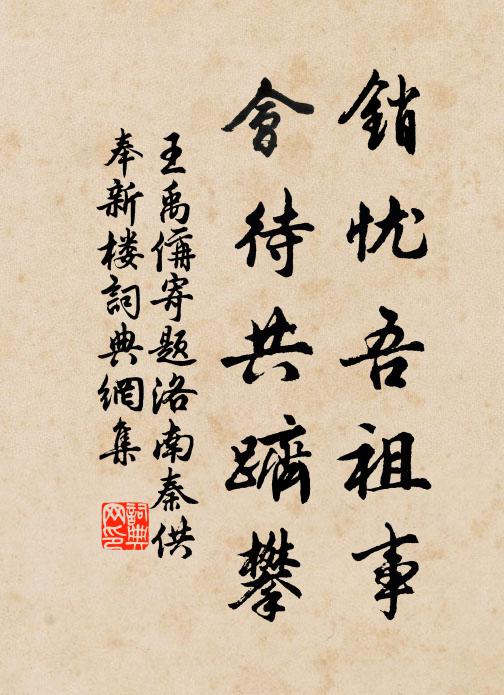 銷忧吾祖事
會待共躋攀
王禹偁寄題洛南秦供
奉新楼詞典網集
詞典
网印